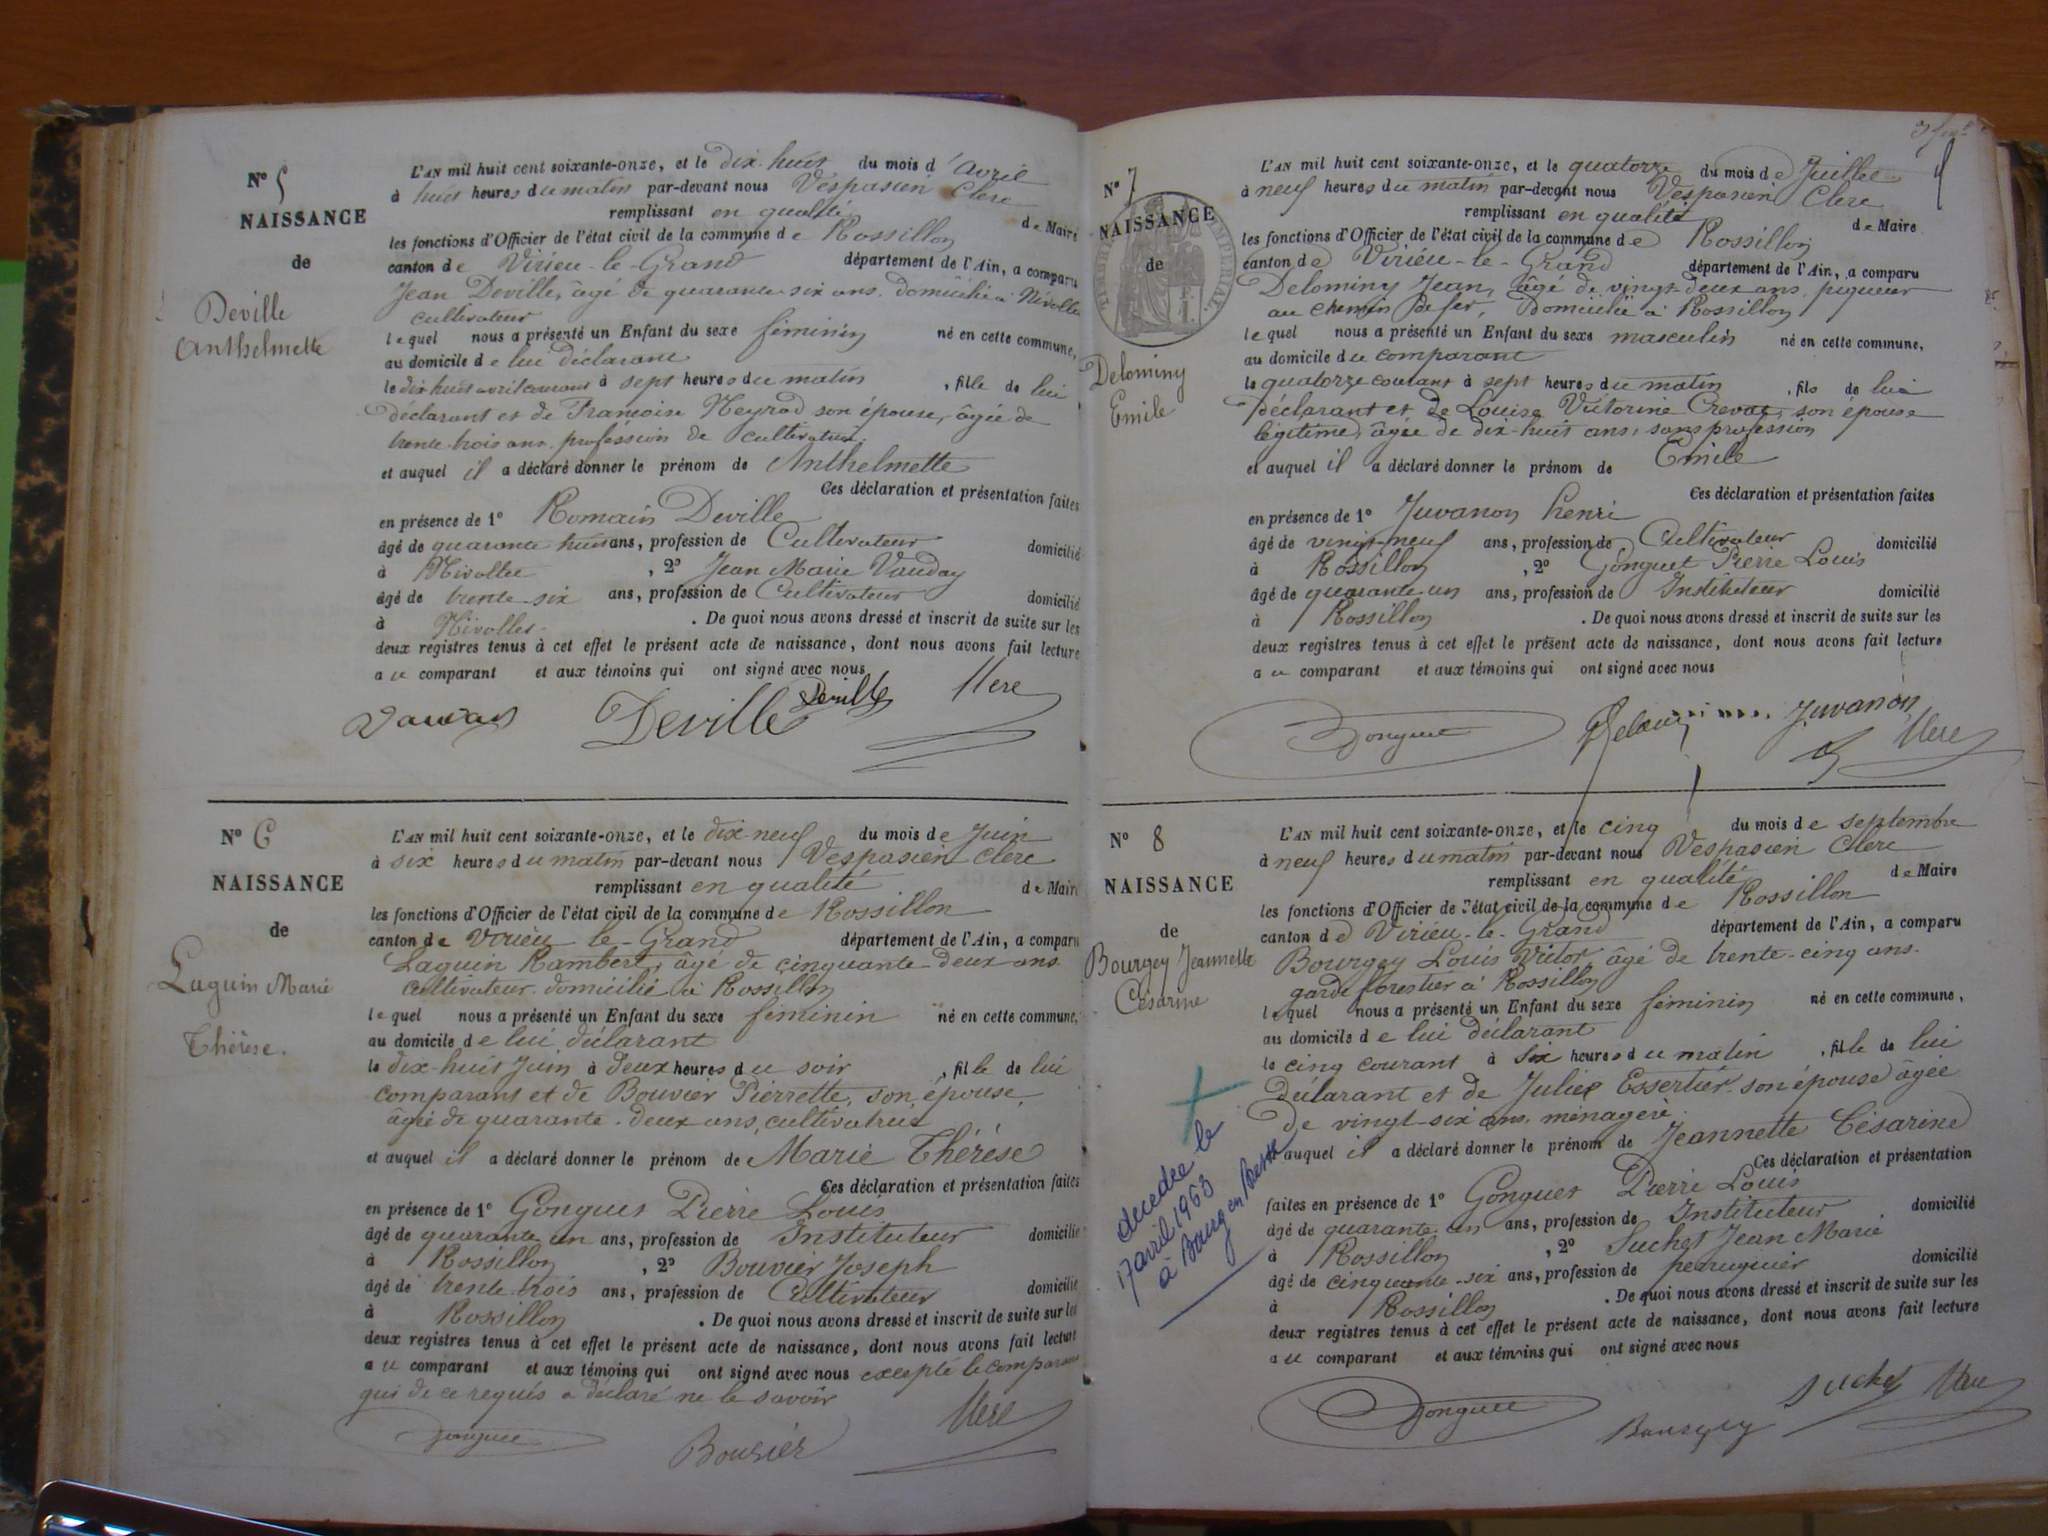 N° 5
NAISSANCE
de
Deville
Anthelmette
L'AN mil huit cent soixante-onze, et le dix-huit du mois d'avril
à huit heures du matin par-devant nous Vespasien Clerc
remplissant en qualité de Maire
les fonctions d'Officier de l'état civil de la commune de Rossillon
canton de Virieu-le-Grand département de l'Ain, a comparu
Jean Deville, âgé de quarante-six ans. domicilié à Nivollet
cultivateur
lequel nous a présenté un Enfant du sexe féminin né en cette commune,
au domicile de lui déclarant
le dix huit avril courant à sept heures du matin, fille de lui
déclarant et de Francoise Neyrod son épouse, âgée de
trente-trois ans, profession de cultivateur
et auquel il a déclaré donner le prénom de Anthelmette
Ces déclaration et présentation faites
en présence de 1° Romain Deville
âgé de quarante huit ans, profession de Cultivateur domicilié
à Nivollet, 2° Jean Marie Vauday
âgé de trente-six ans, profession de Cultivateur domicilié
à Nivollet. De quoi nous avons dressé et inscrit de suite sur les
deux registres tenus à cet effet le présent acte de naissance, dont nous avons fait lecture
au comparant et aux témoins qui ont signé avec nous
Vauday Deville Deville Clerc
N° 6
NAISSANCE
de
Laguin Marie
Thérèse.
L'AN mil huit cent soixante-onze, et le dix-neuf du mois de Juin
à six heures du matin par-devant nous Vespasien Clerc
remplissant en qualité de Maire
les fonctions d'Officier de l'état civil de la commune de Rossillon
canton de Virieu-le-Grand département de l'Ain, a comparu
Laguin Rambert, âgé de cinquante-deux ans
cultivateur domicilié à Rossillon
lequel nous a présenté un Enfant du sexe féminin né en cette commune,
au domicile de lui déclarant
le dix-huit Juin à deux heures du soir, fille de lui
comparant et de Bouvier Pierrette, son épouse,
âgée de quarante-deux ans, cultivatrice
et auquel il a déclaré donner le prénom de Marie Thérèse
Ces déclaration et présentation faites
en présence de 1° Gonguet Pierre Louis
âgé de quarante un ans, profession de Instituteur domicilié
à Rossillon, 2° Bouvier Joseph
âgé de trente-trois ans, profession de Cultivateur domicilié
à Rossillon. De quoi nous avons dressé et inscrit de suite sur les
deux registres tenus à cet effet le présent acte de naissance, dont nous avons fait lecture
au comparant et aux témoins qui ont signé avec nous excepté le comparant
qui de ce requis a déclaré ne le savoir
Gonguet Bouvier Clerc
N° 7
NAISSANCE
de
TIMBRE IMPERIAL
Delominy
Emile
L'AN mil huit cent soixante-onze, et le quatorze du mois de Juillet
à neuf heures du matin par-devant nous Vespasien Clerc
remplissant en qualité de Maire
les fonctions d'Officier de l'état civil de la commune de Rossillon
canton de Virieu-le-Grand département de l'Ain, a comparu
Delominy Jean, âgé de vingt-deux ans, piqueur
au chemin de fer, domicilié à Rossillon
lequel nous a présenté un Enfant du sexe masculin né en cette commune,
au domicile du comparant
le quatorze courant à sept heures du matin, fils de lui
déclarant et de Louise Victorine Crevat, son épouse
légitime, âgée de dix-huit ans, sans profession
et auquel il a déclaré donner le prénom de Emile
Ces déclaration et présentation faites
en présence de 1° Juvanon henri
âgé de vingt-neuf ans, profession de Cultivateur domicilié
à Rossillon, 2° Gonguet Pierre Louis
âgé de quarante un ans, profession de Instituteur domicilié
à Rossillon. De quoi nous avons dressé et inscrit de suite sur les
deux registres tenus à cet effet le présent acte de naissance, dont nous avons fait lecture
au comparant et aux témoins qui ont signé avec nous
Gonguet Juvanon Clerc
N° 8
NAISSANCE
de
Bourgey Jeannette
Césarine
décédée le
17 avril 1963
à Bourg en Bresse
L'AN mil huit cent soixante-onze, et le cinq du mois de septembre
à neuf heures du matin par-devant nous Vespasien Clerc
remplissant en qualité de Maire
les fonctions d'Officier de l'état civil de la commune de Rossillon
canton de Virieu-le-Grand département de l'Ain, a comparu
Bourgey Louis Victor âgé de trente-cinq ans.
garde forestier à Rossillon
lequel nous a présenté un Enfant du sexe féminin né en cette commune,
au domicile de lui déclarant
le cinq courant à six heures du matin, fille de lui
déclarant et de Julie Essertier son épouse âgée
de vingt-six ans, ménagère
auquel il a déclaré donner le prénom de Jeannette Césarine
Ces déclaration et présentation
faites en présence de 1° Gonguet Pierre Louis
âgé de quarante-un ans, profession de Instituteur domicilié
à Rossillon, 2° Suchet Jean Marie
âgé de cinquante-six ans, profession de perruquier domicilié
à Rossillon. De quoi nous avons dressé et inscrit de suite sur les
deux registres tenus à cet effet le présent acte de naissance, dont nous avons fait lecture
au comparant et aux témoins qui ont signé avec nous
Gonguet Bourgey Suchet Clerc